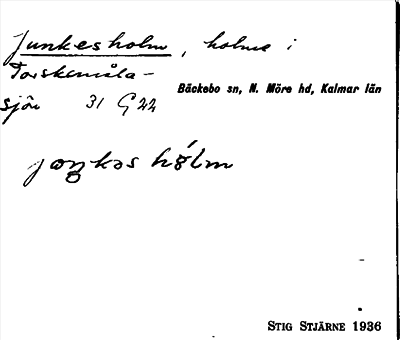 Junkesholm, holme i
Torskemåla-
Bäckebo sn, N. Möre hd, Kalmar län
sjön 31 G 22
STIG STJÄRNE 1936